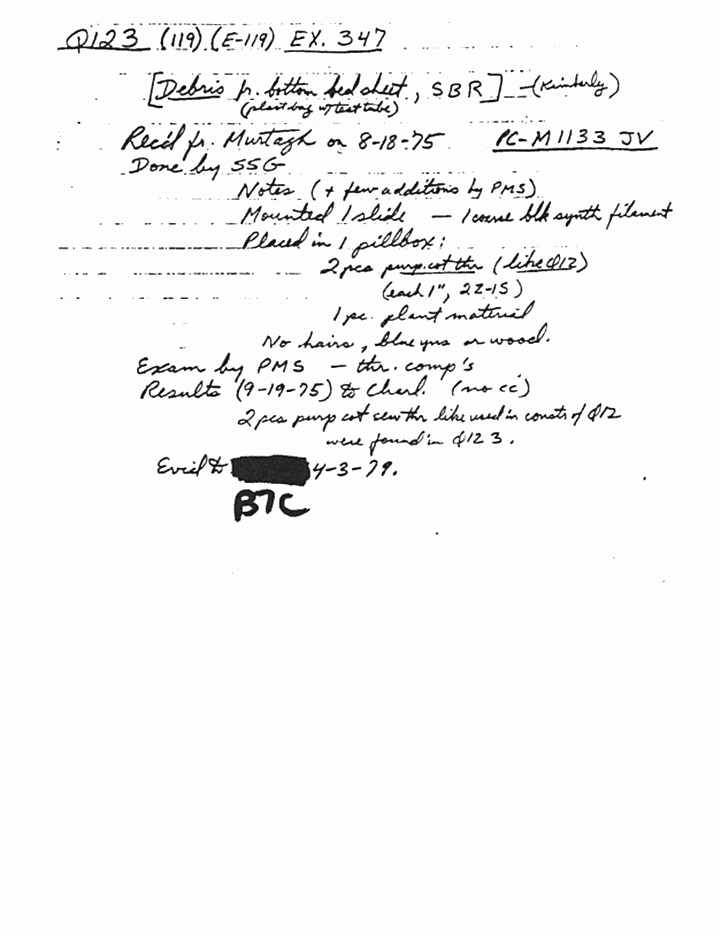 Q123 (119) (E-119) EX. 347
[Debris fr. bottom bed sheet, SBR] - (Kimberly)
(plast bag w/test tube)
Rec'd fr. Murtagh on 8-18-75 PC-M1133 JV
Done by SSG
Notes (+ few additions by PMS)
Mounted 1 slide — 1 coarse blk synth filament
Placed in 1 pillbox:
2 pcs purp. cot thr (like Q12)
(each 1", 2Z-1S)
1 pc. plant material
No hairs, blue yns or wood.
Exam by PMS — thr. comp's
Results (9-19-75) to Charl. (no cc)
2 pcs purp cot sew thr like used in constr of Q12
were found in Q123.
Evid to 4-3-79.
B7C